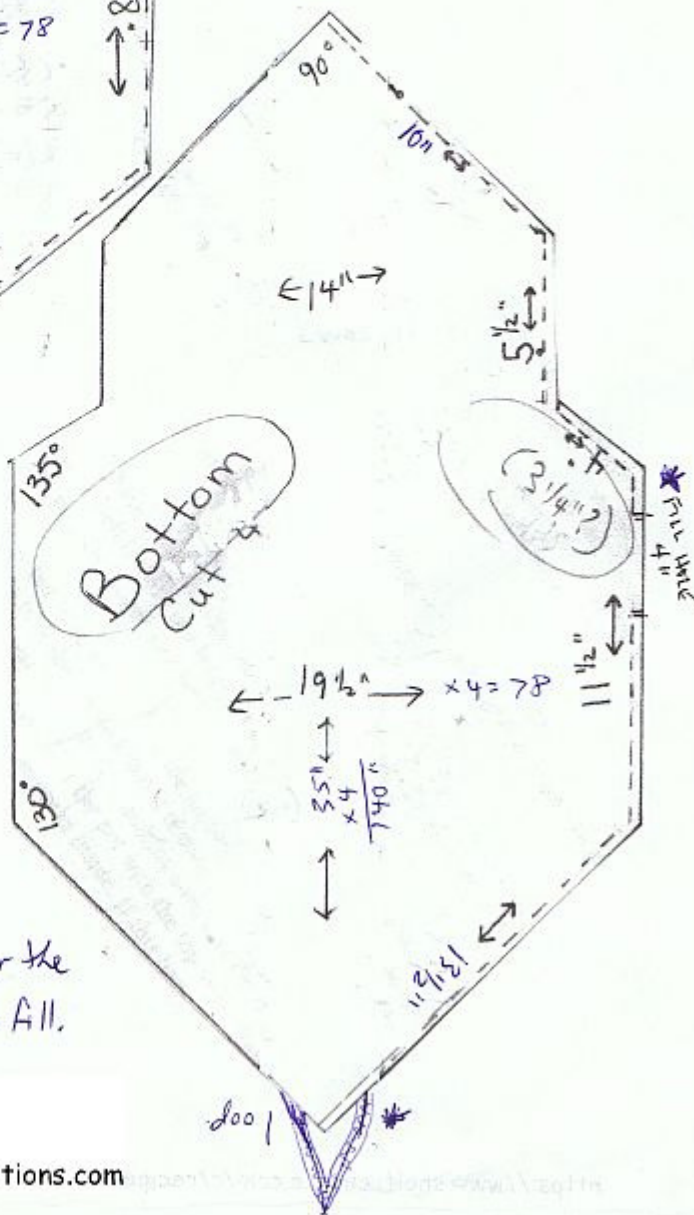 = 78
8
90°
10"
14"
5 1/2"
135°
Bottom
Cut 4
4.
(3 1/4"?)
FILL HOLE
4"
11 1/2"
19 1/2" x 4 = 78
35"
x 4
140"
130°
13 1/2"
r the
fill.
loop
tions.com